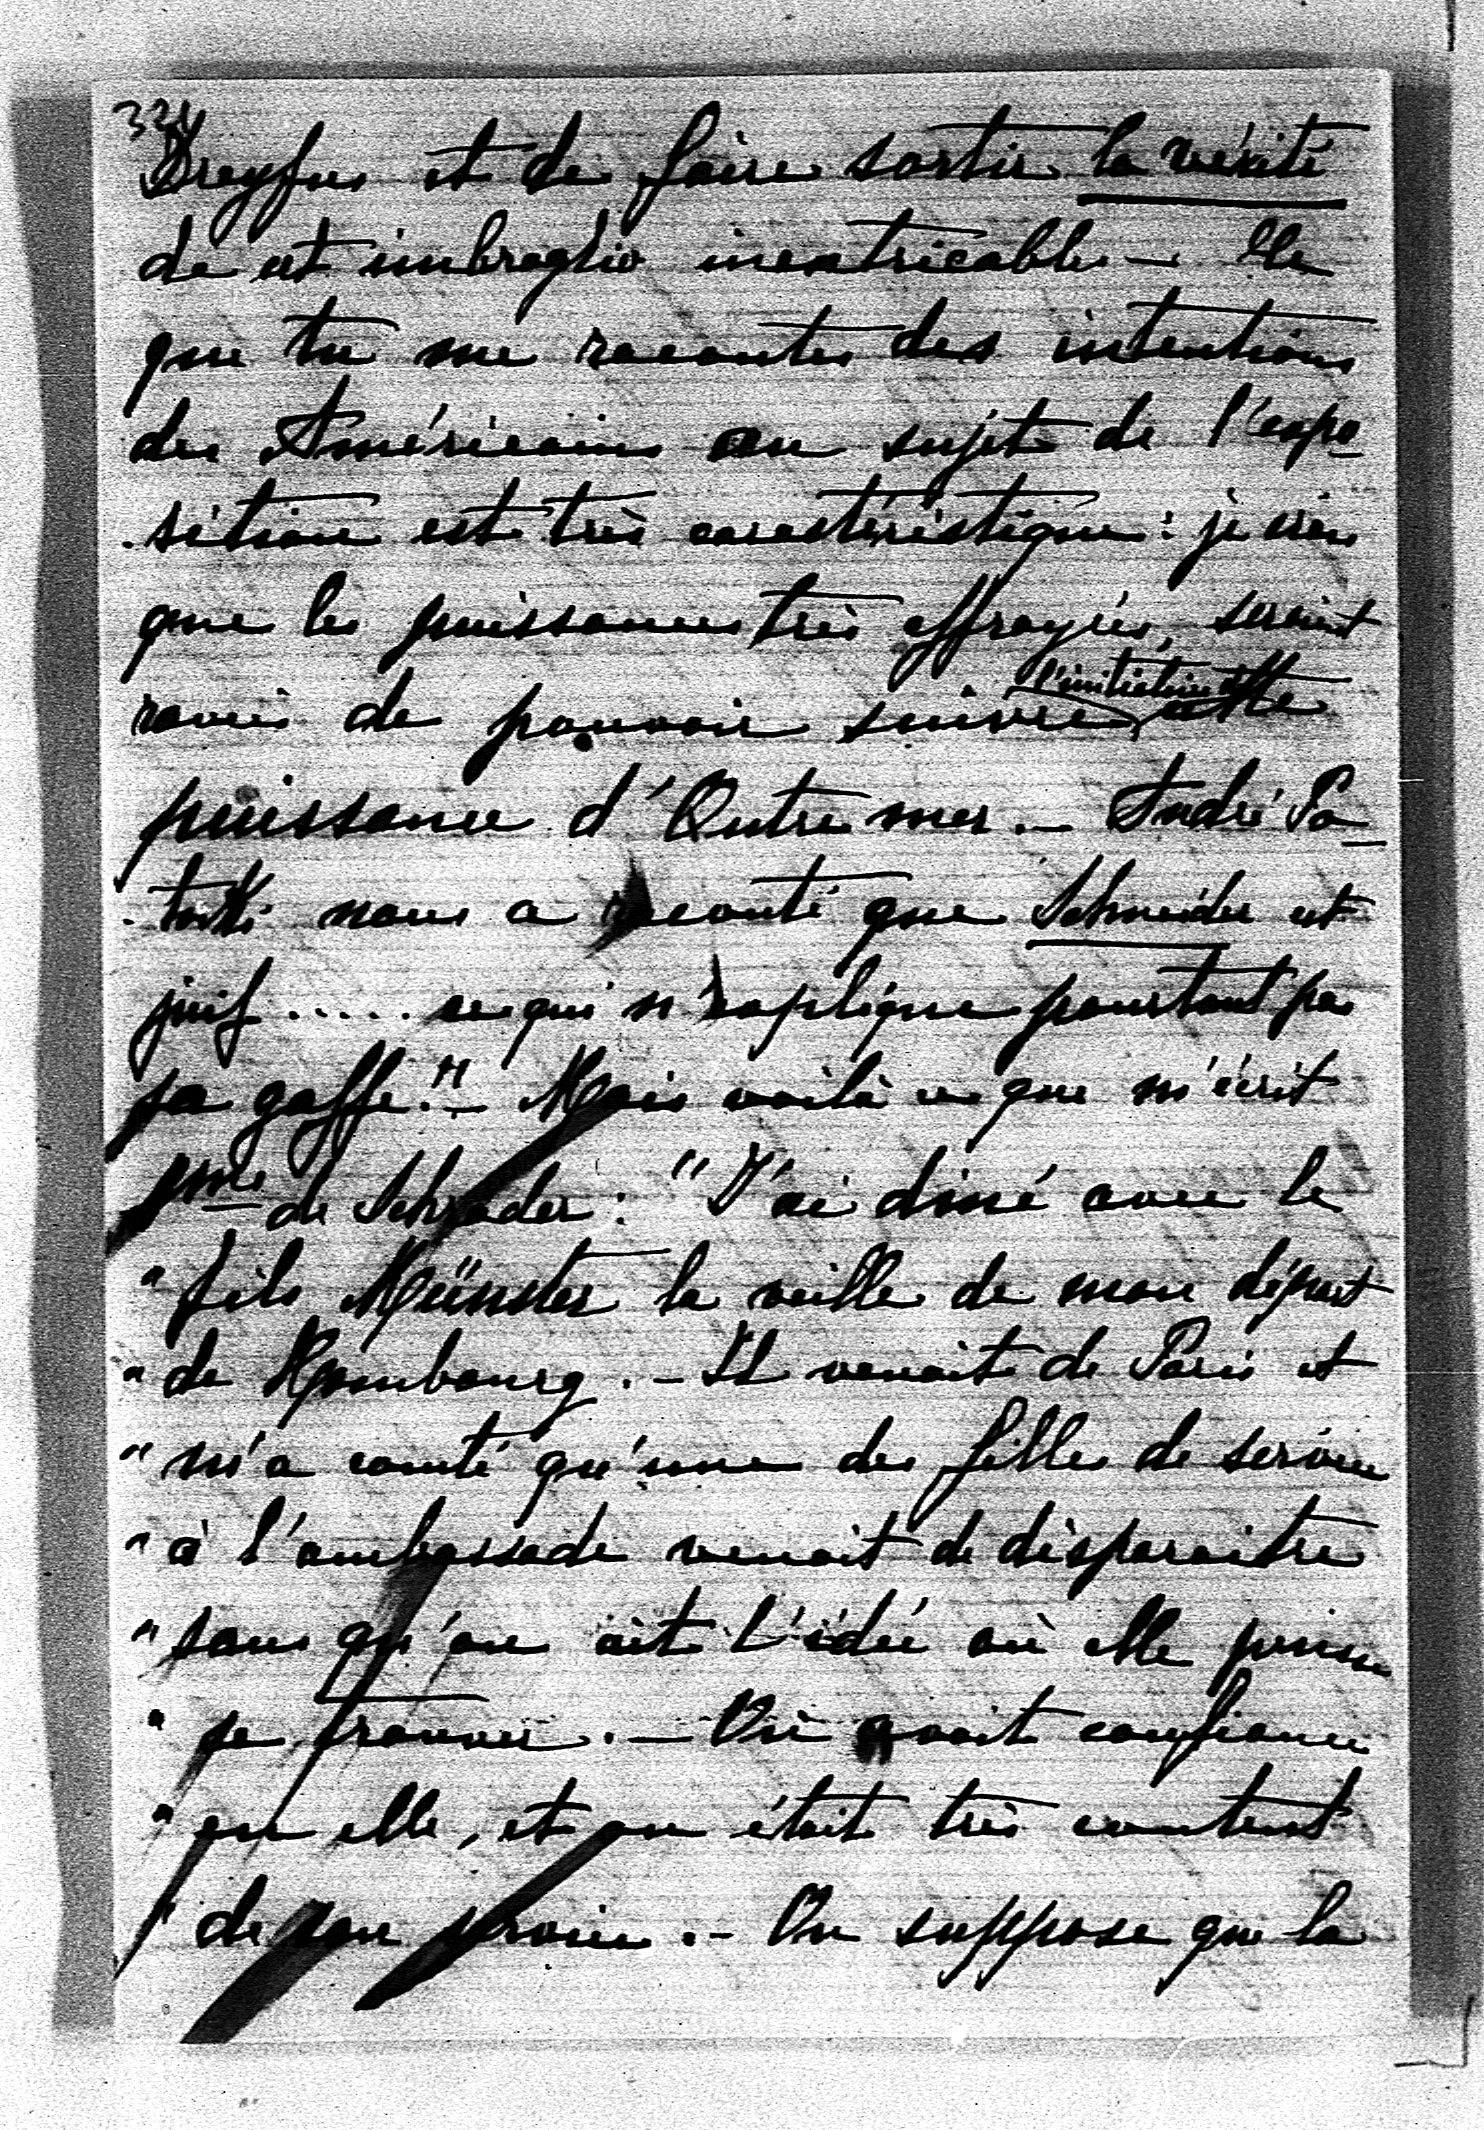 334
Dreyfus et de faire sortir la vérité
de cet imbroglio inextricable — Ce
que tu me racontes des intentions
des Américains au sujet de l'expo
sition est très caractéristique : je crois
que les puissances très effrayées, seraient
ravies de pouvoir suivre l'initiative de cette
puissance d'Outre mer. — André Po
tocki nous a raconté que Schneider est
juif ..... ce qui n'explique pourtant pas
sa gaffe !! — Mais voilà ce que m'écrit
Mme de Schrader : "J'ai diné avec le
" fils Münster la veille de mon départ
" de Hombourg . — Il venait de Paris et
" m'a conté qu'une des filles de service
" à l'ambassade venait de disparaitre
" sans qu'on ait l'idée où elle puisse
" se trouver . — On avait confiance
" en elle, et on était très content
" de son service . — On suppose que la